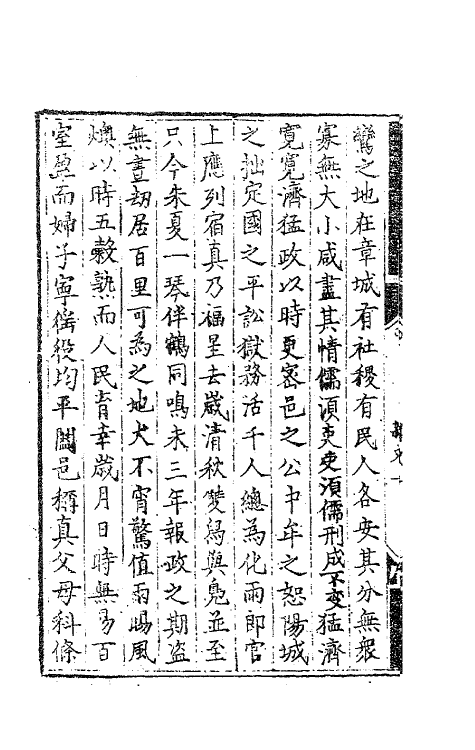 鸞之地在章城有社稷有民人各安其分無衆
寡無大小咸盡其情儒須吏吏須儒刑成不变猛濟
寬寛濟猛政以時更密邑之公中年之恕陽城
之拙定國之平訟獄務活千人總為化雨郎官
上應列宿真乃福星去歲清秋雙舄與鳬並至
只今朱夏一琴伴鶴同鳴未三年報政之期盗
無晝刼居百里可為之地犬不宵驚值雨暘風
燠以時五穀熟而人民育幸歲月日時無易百
室盈而婦子寧徭役均平闔邑稱真父母科條